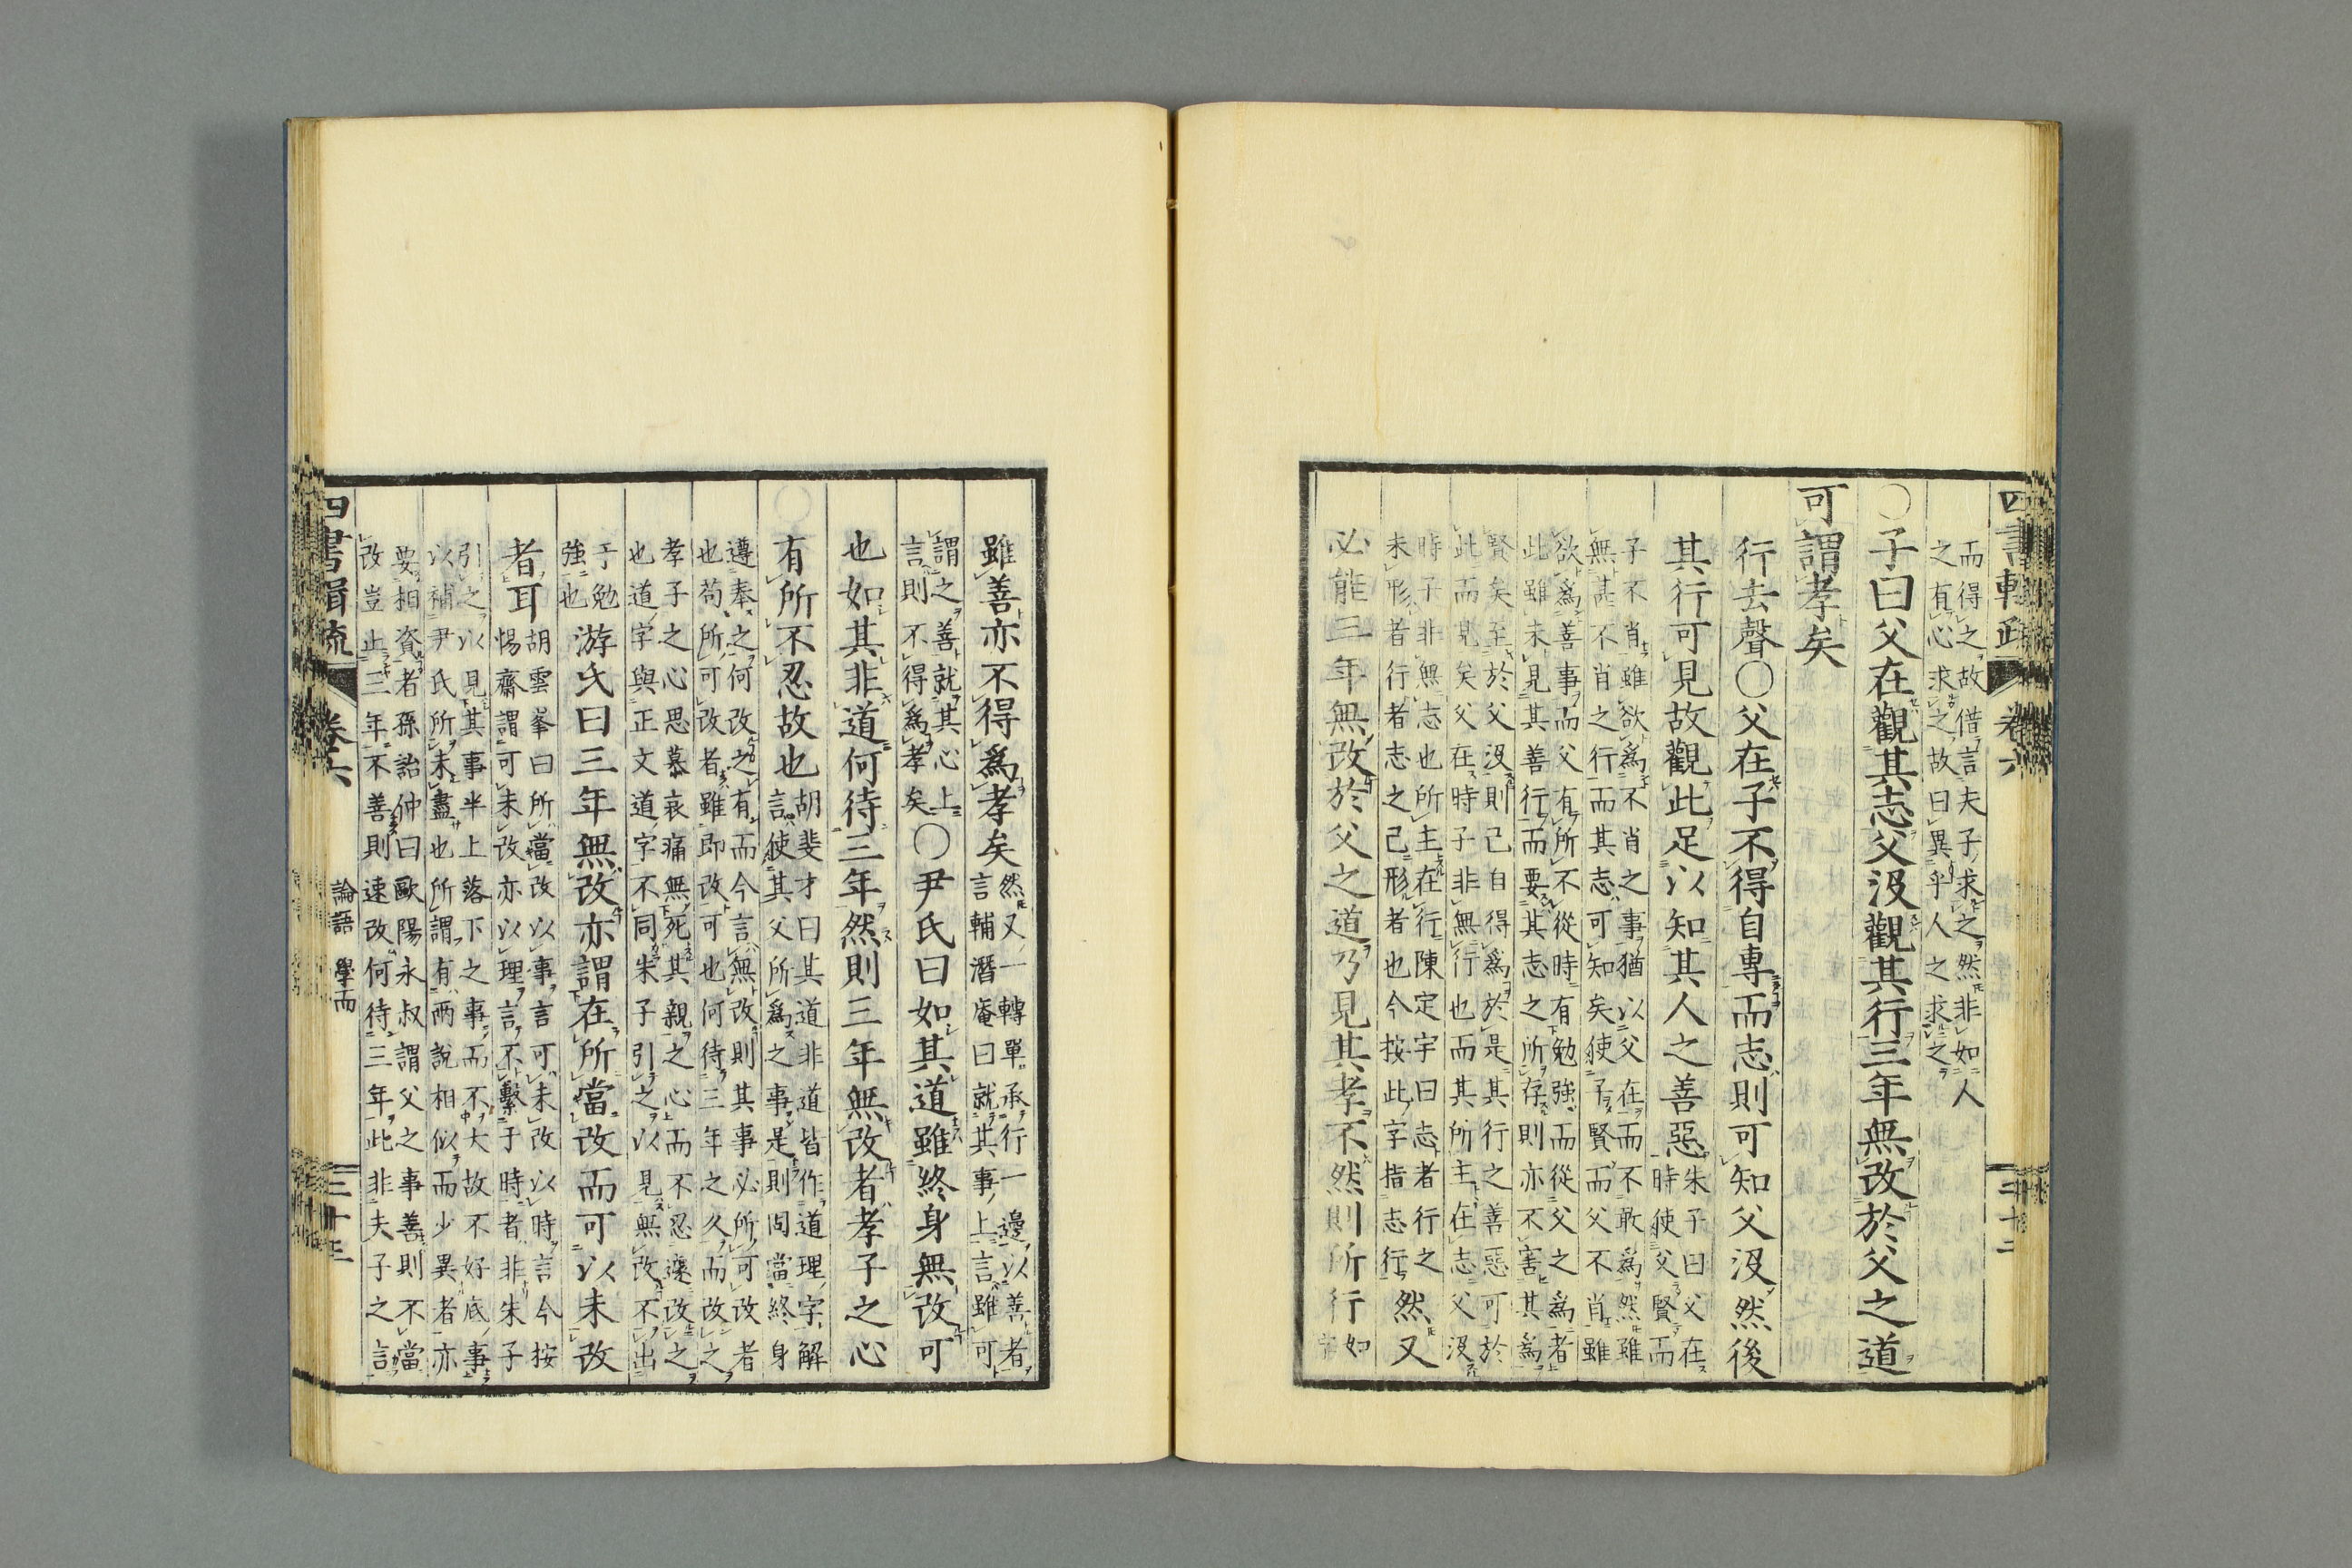 四書輯疏 卷六
而得之故借言夫子求之然非如人
之有心求之故曰異乎人之求之
〇子曰父在觀其志父沒觀其行三年無改於父之道
可謂孝矣
行去聲〇父在子不得自專而志則可知父沒然後
其行可見故觀此足以知其人之善惡
朱子曰父在
時使父賢而
子不肖雖欲爲不肖之事猶以父在而不敢爲然雖
無甚不肖之行而其志可知矣使子賢而父不肖雖
欲爲善事而父有所不從時有勉強而從父之爲者
此雖未見其善行而要其志之所存則亦不害其爲
賢矣至於父沒則己自得爲於是其行之善惡可於
此而見矣父在時子非無行也而其所主在志父沒
時子非無志也所主在行陳定宇曰志者行之
未形者行者志之已形者也今按此字指志行
然又
必能三年無改於父之道乃見其孝不然則所行
如
字
雖善亦不得爲孝矣
然又一轉單承行一邊以善者
言輔潛庵曰就其事上言雖可
謂之善就其心上
言則不得爲孝矣
〇尹氏曰如其道雖終身無改可
也如其非道何待三年然則三年無改者孝子之心
有所不忍故也
胡斐才曰其道非道皆作道理字解
言使其父所爲之事是則固當終身
遵奉之何改之有而今言無改則其事必所可改者
也苟所可改者雖即改可也何待三年之久而改之
孝子之心思慕哀痛無死其親之心而不忍遽改之
也道字與正文道字不同朱子引之以見無改不出
于勉
強也
游氏曰三年無改亦謂在所當改而可以未改
者耳
胡雲峯曰所當改以事言可未改以時言今按
惕齋謂可未改亦以理言不繫于時者非朱子
引之以見其事半上落下之事而不大故不好底事
以補尹氏所未盡也所謂有兩說相似而少異者亦
要相資者孫詒仲曰歐陽永叔謂父之事善則不當
改豈止三年不善則速改何待三年此非夫子之言
四書輯疏 卷六 論語 學而